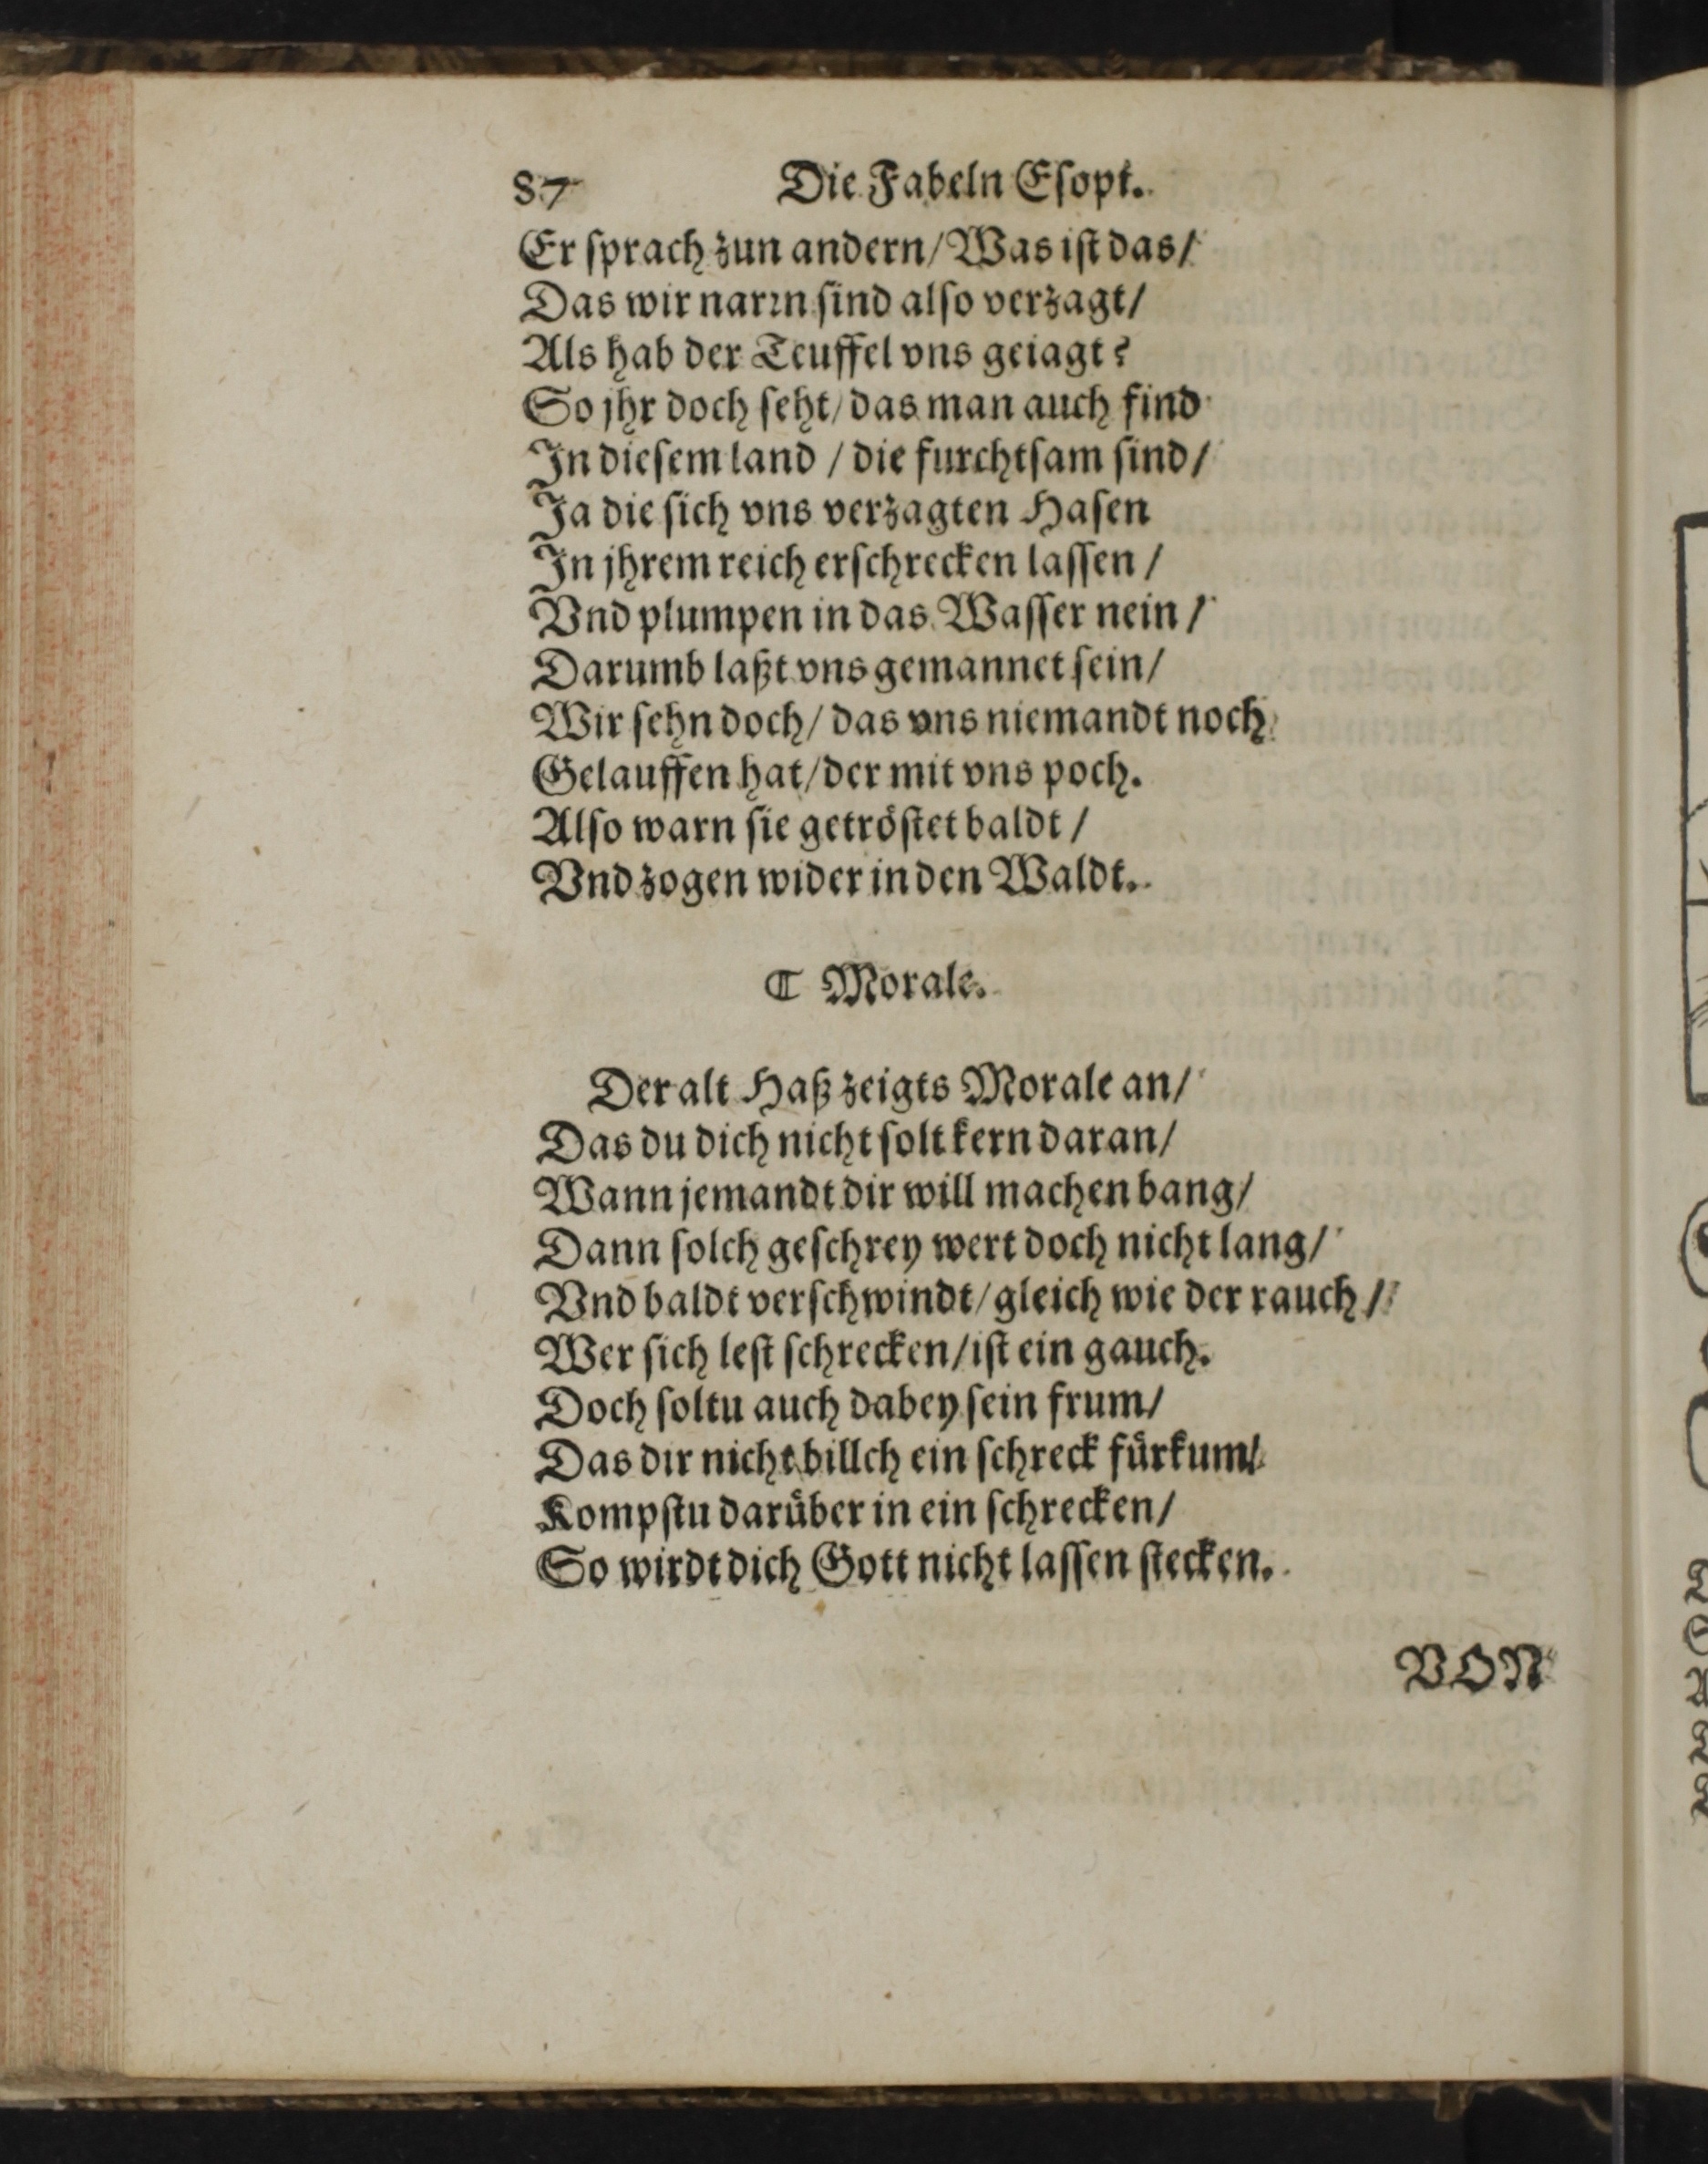 87 Die Fabeln Eſopi.
Er ſprach zun andern/ Was iſt das/
Das wir narꝛn ſind alſo verzagt/
Als hab der Teuffel vns geiagt?
So jhr doch ſeht/ das man auch find
In dieſem land / die furchtſam ſind/
Ja die ſich vns verzagten Haſen
In jhrem reich erſchrecken laſſen /
Vnd plumpen in das Waſſer nein /
Darumb laßt vns gemannet ſein/
Wir ſehn doch/ das vns niemandt noch
Gelauffen hat/ der mit vns poch.
Alſo warn ſie getröſtet baldt /
Vnd zogen wider in den Waldt.
¶ Morale.
Der alt Haß zeigts Morale an/
Das du dich nicht ſolt kern daran/
Wann jemandt dir will machen bang/
Dann ſolch geſchrey wert doch nicht lang/
Vnd baldt verſchwindt/ gleich wie der rauch /
Wer ſich leſt ſchrecken/ iſt ein gauch.
Doch ſoltu auch dabey ſein frum/
Das dir nicht billch ein ſchreck fürkum/
Kompſtu darüber in ein ſchrecken/
So wirdt dich Gott nicht laſſen ſtecken.
VON